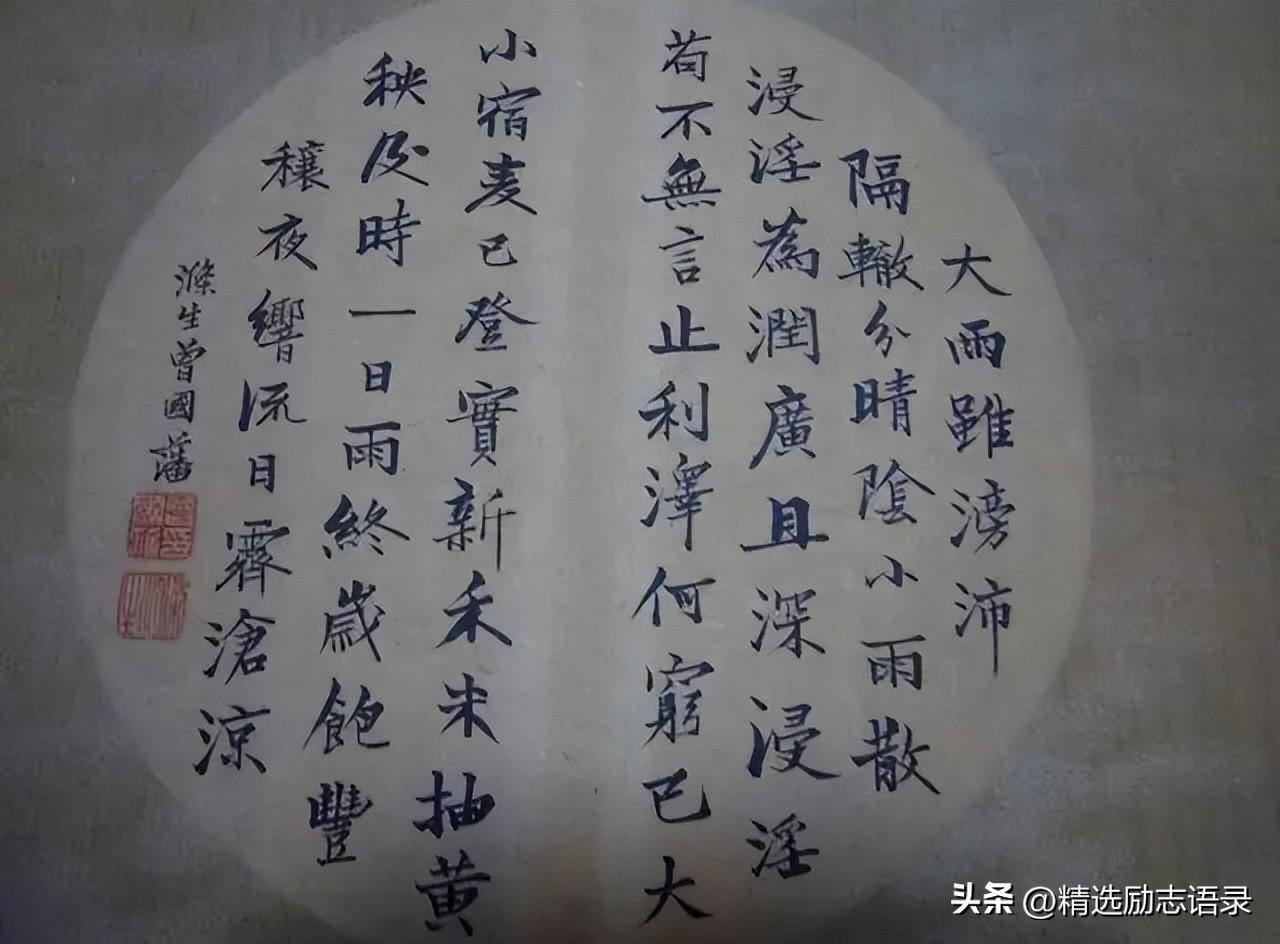 大雨雖滂沛
隔轍分晴陰小雨散
浸淫為潤廣且深浸淫
苟不無言止利澤何窮已大
小宿麦已登實新禾未抽黃
秧及時一日雨終歲飽豐
穰夜響流日霽滄涼
滌生曾國藩
头条 @精选励志语录